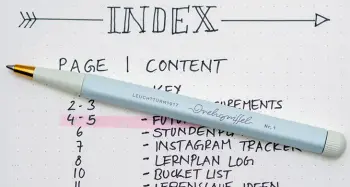 INDEX
PAGE | CONTENT
KEY
2-3
4-5 - FUTU
6 - STUNDENPL
7 - INSTAGRAM TRACKER
8 - LERNPLAN LOG
10 - BUCKET LIST
LEUCHTTURM1917 Drehgriffel Nr.1